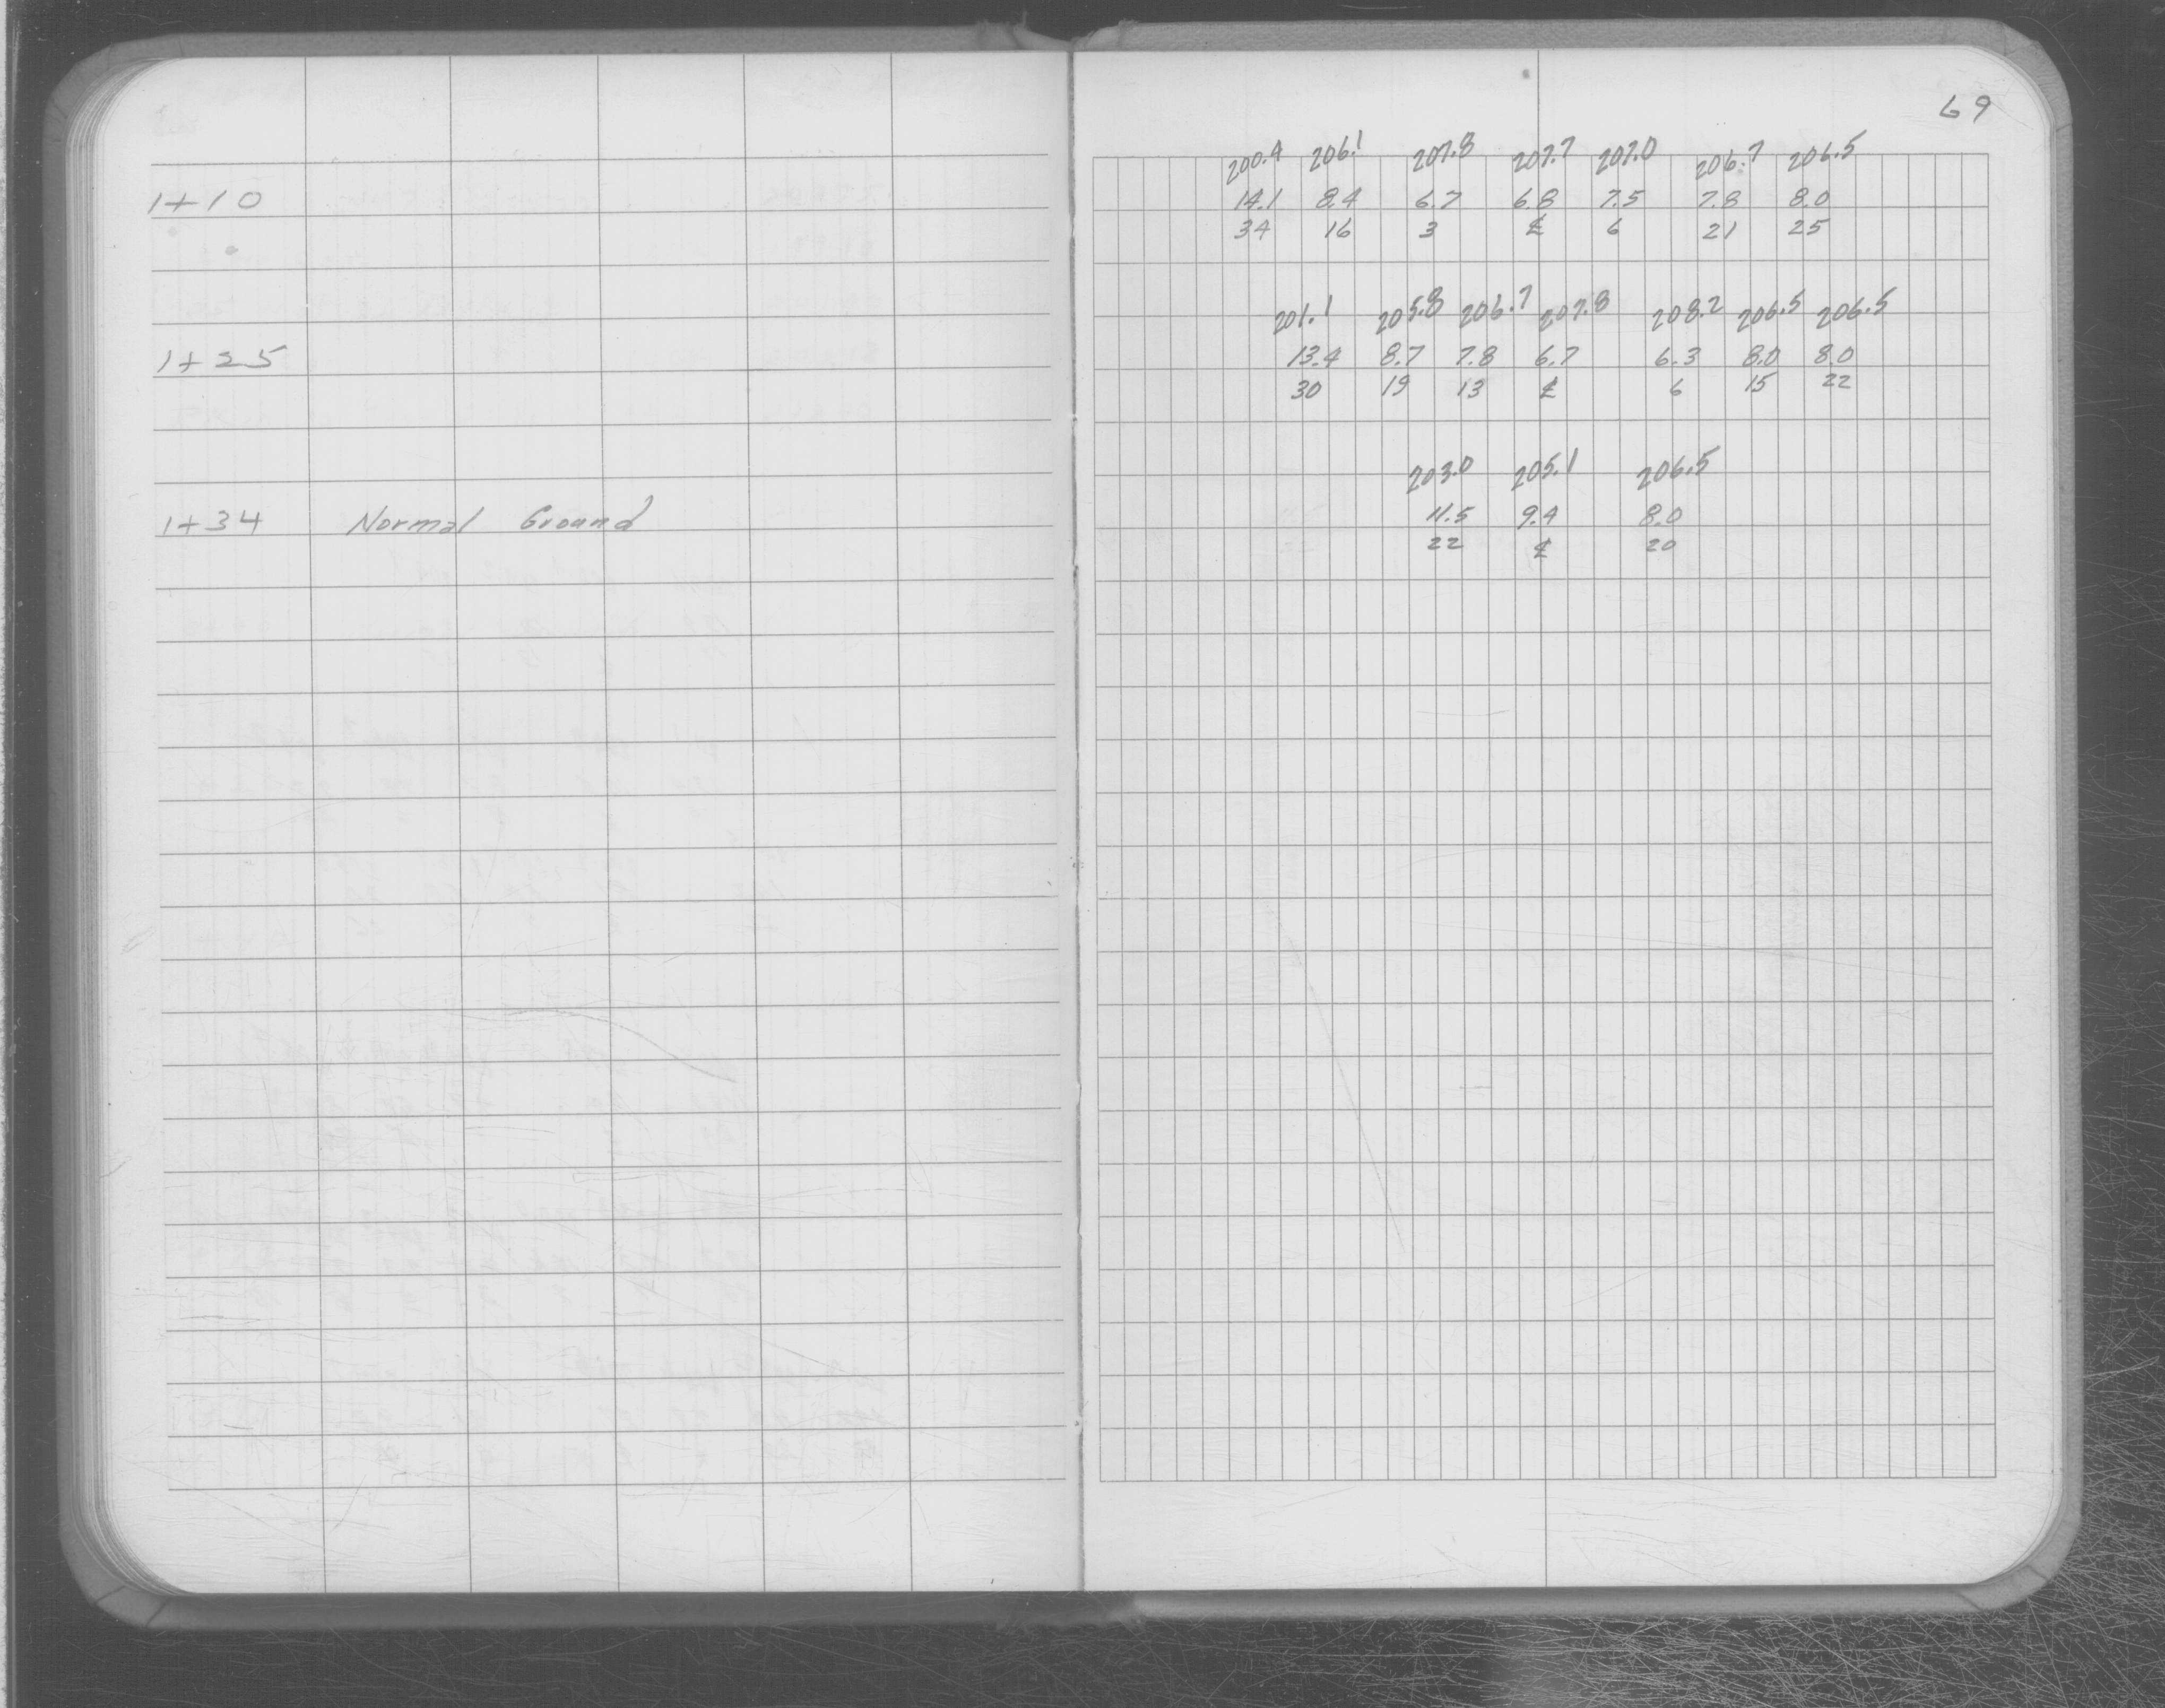 69
200.4 206.1 207.8 207.7 207.0 206.7 206.5
1+10 14.1 8.4 6.7 6.8 7.5 7.8 8.0
34 16 3 ℄ 6 21 25
201.1 205.8 206.7 207.8 208.2 206.5 206.5
1+25 13.4 8.7 7.8 6.7 6.3 8.0 8.0
30 19 13 ℄ 6 15 22
203.0 205.1 206.5
1+34 Normal Ground 11.5 9.4 8.0
22 ℄ 20